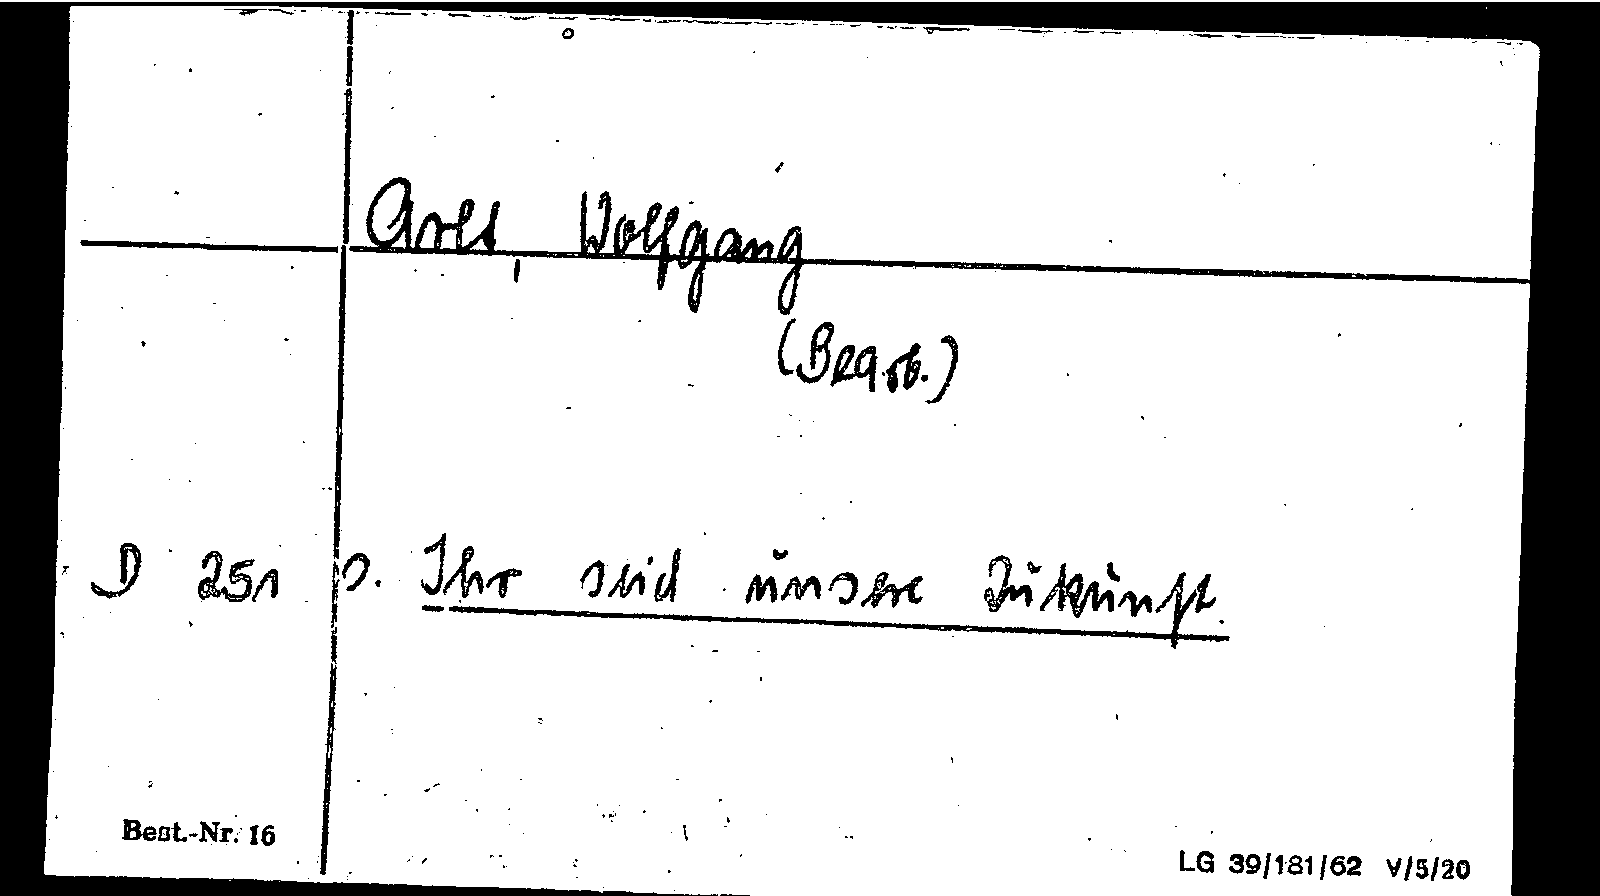 Arlt, Wolfgang
(Bearb.)
D 251 s. Ihr seid unsere Zukunft.
Best.-Nr. 16
LG 39/181/62 V/5/20